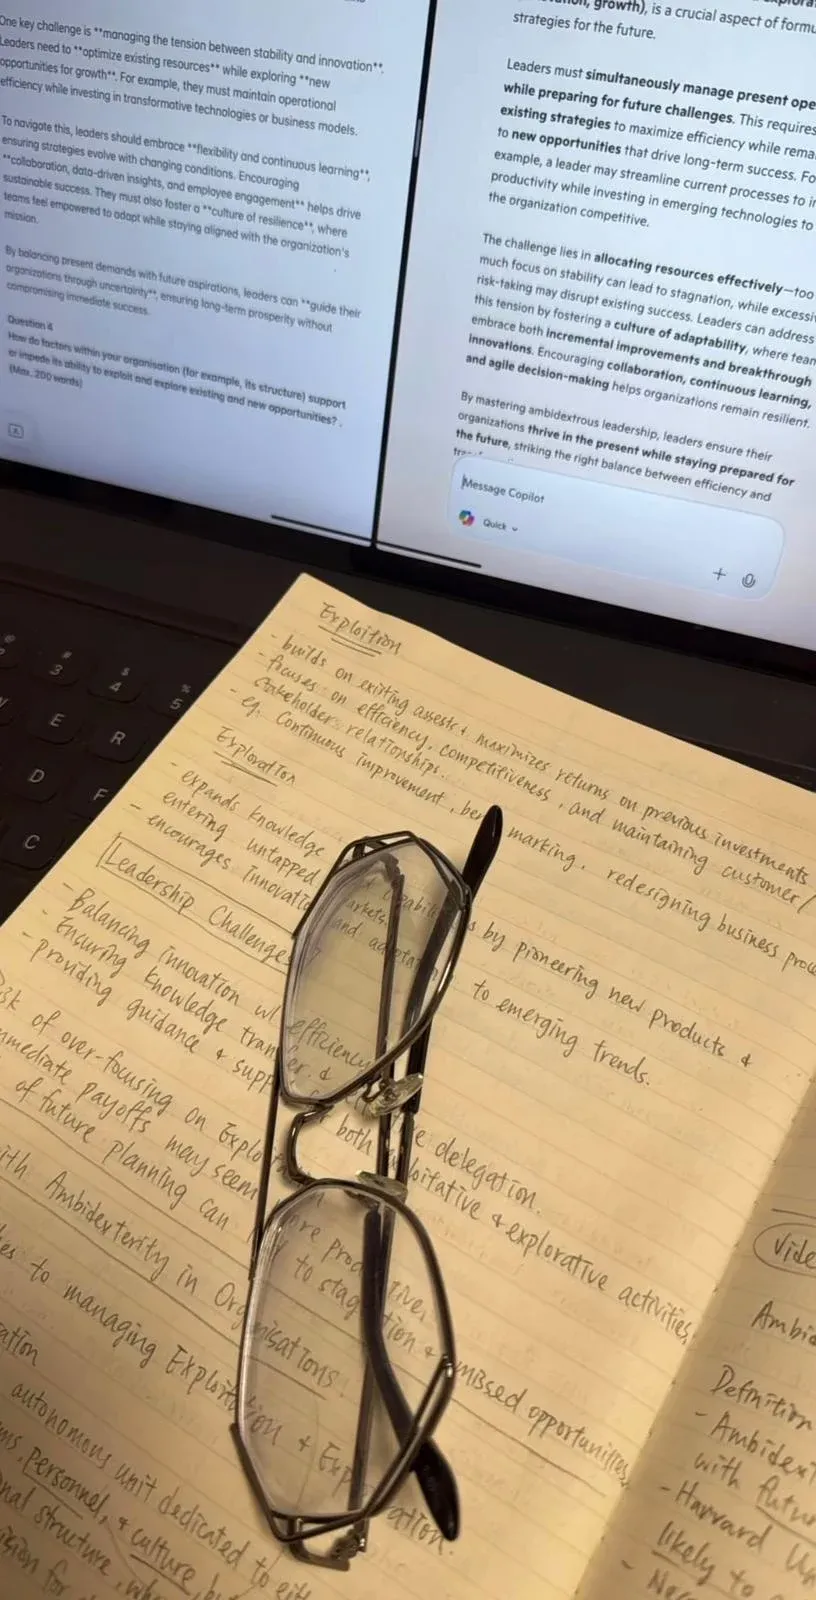 One key challenge is **managing the tension between stability and innovation**.
Leaders need to **optimize existing resources** while exploring **new
opportunities for growth**. For example, they must maintain operational
efficiency while investing in transformative technologies or business models.
To navigate this, leaders should embrace **flexibility and continuous learning**,
ensuring strategies evolve with changing conditions. Encouraging
**collaboration, data-driven insights, and employee engagement** helps drive
sustainable success. They must also foster a **culture of resilience**, where
teams feel empowered to adapt while staying aligned with the organization's
mission.
By balancing present demands with future aspirations, leaders can **guide their
organizations through uncertainty**, ensuring long-term prosperity without
compromising immediate success.
Question 4
How do factors within your organisation (for example, its structure) support
or impede its ability to exploit and explore existing and new opportunities? .
(Max. 200 words)
growth), is a crucial aspect of
strategies for the future.
Leaders must simultaneously manage present
while preparing for future challenges. This requires
existing strategies to maximize efficiency while
to new opportunities that drive long-term success.
example, a leader may streamline current processes to
productivity while investing in emerging technologies to
the organization competitive.
The challenge lies in allocating resources effectively—too
much focus on stability can lead to stagnation, while
risk-taking may disrupt existing success. Leaders can address
this tension by fostering a culture of adaptability, where
embrace both incremental improvements and breakthrough
innovations. Encouraging collaboration, continuous learning,
and agile decision-making helps organizations remain resilient.
By mastering ambidextrous leadership, leaders ensure their
organizations thrive in the present while staying prepared for
the future, striking the right balance between efficiency and
Message Copilot
Quick
# 3
$ 4
% 5
E
R
D
F
C
Exploition
- builds on existing assests & maximizes returns on previous investments
- focuses on efficiency, competitiveness, and maintaining customer/
stakeholder relationships.
- eg. Continuous improvement, marking, redesigning business
Exploration
- expands knowledge by pioneering new products &
entering untapped
- encourages and to emerging trends.
Leadership Challenges
- Balancing innovation w/ efficiency
- Ensuring knowledge delegation.
- Providing guidance & both & explorative activities
of over-focusing on
payoffs may seem
of future planning can to & missed opportunities
Ambidexterity in Organisations
to managing &
autonomous unit dedicated to
personnel, & culture,
structure,
for
Definition
-
with
- Harvard
likely to
-